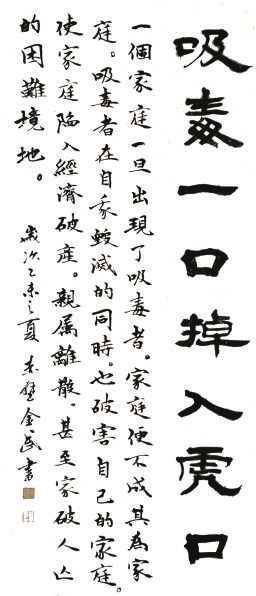 吸毒一口掉入虎口
一個家庭一旦出現了吸毒者。家庭便不成其為家
庭。吸毒者在自我毀滅的同時。也破害自己的家庭。
使家庭陷入經濟破産。親属離散。甚至家破人亡
的困難境地。
歲次乙未之夏 金民書